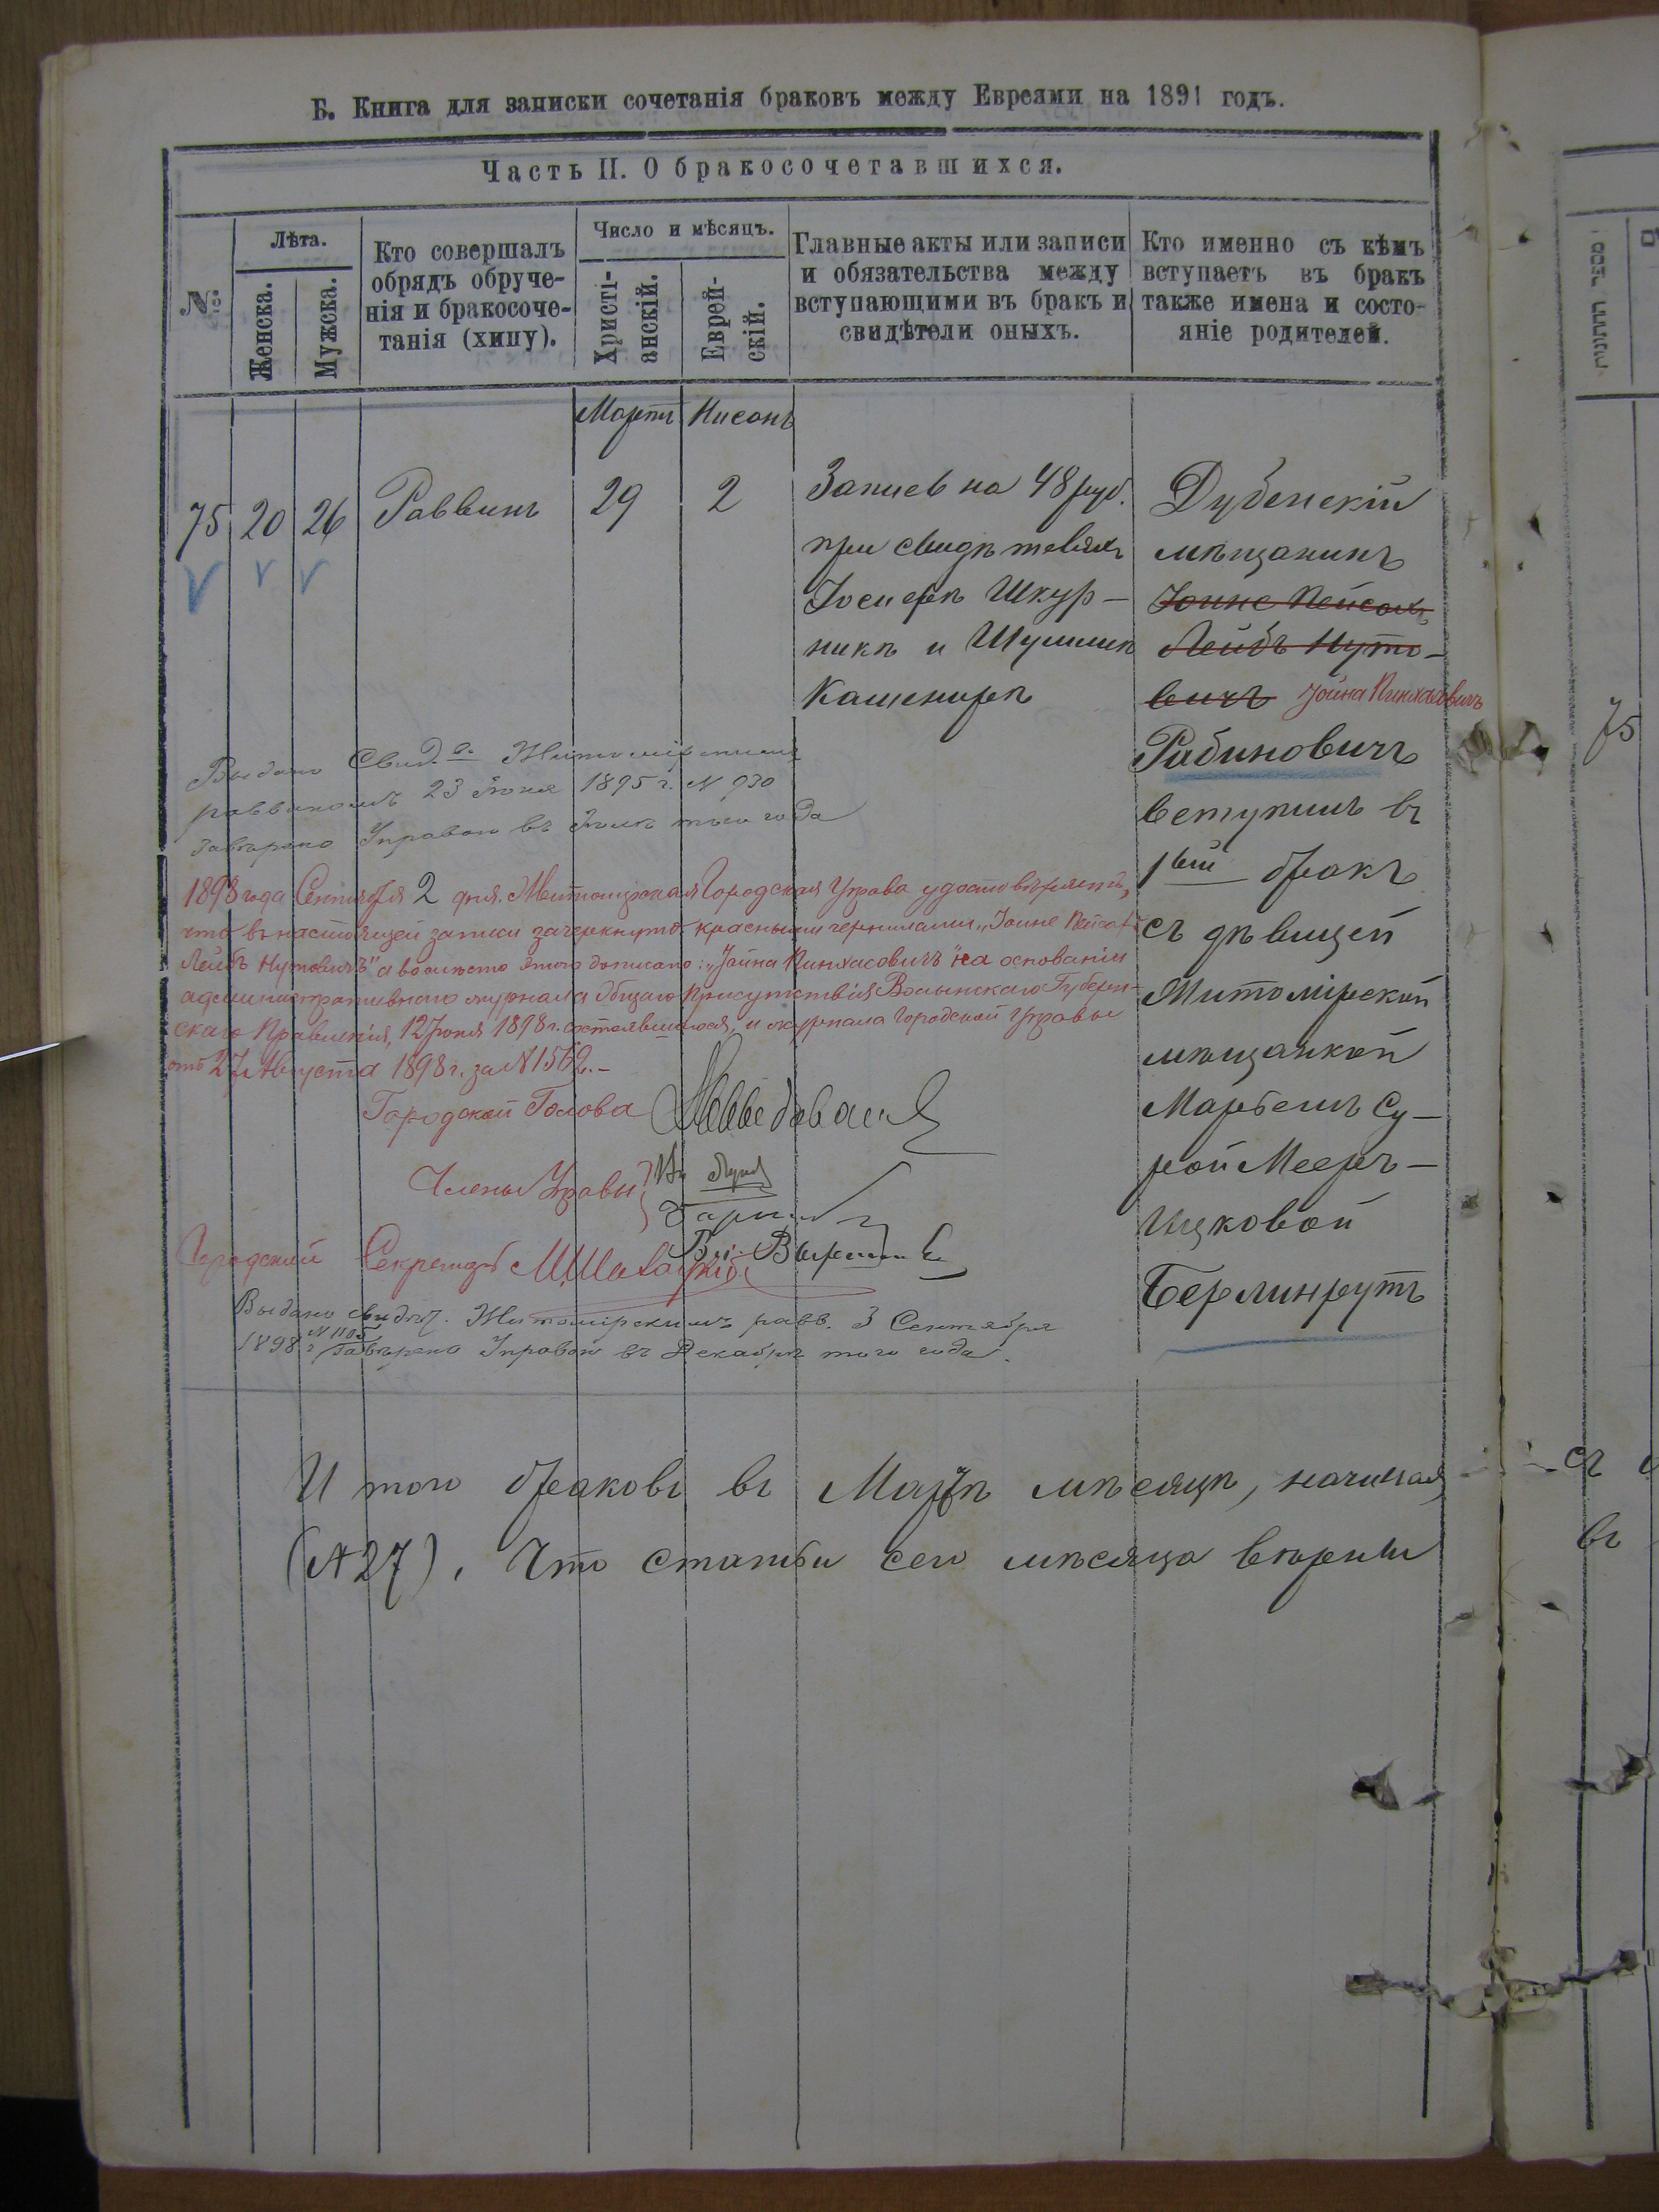 Б. Книга для записки сочетанія браковъ между Евреями на 1891 годъ.
Часть II. О бракосочетавшихся.
№
Лѣта.
Женска.
Мужска.
Кто совершалъ
обрядъ обруче-
нія и бракосоче-
танія (хипу).
Число и мѣсяцъ.
Христі-
анскій.
Еврей-
скій.
Главные акты или записи
и обязательства между
вступающими въ бракъ и
свидѣтели оныхъ.
Кто именно съ кѣмъ
вступаетъ въ бракъ
также имена и состо-
яніе родителей.
Мартъ Нисонъ
75 20 26 Раввинъ 29 2
Запись на 48 руб.
при свидѣтеляхъ
Іосифѣ Шкур-
никѣ и Шулимѣ
Кашеннрѣ
Дубенскій
мѣщанинъ
Іоине Пейсахъ
Лейбъ Нуто-
вичъ Іойна Пинхасовичъ
Рабиновичъ
вступилъ въ
1вый бракъ
съ дѣвицей
Житомірской
мѣщанкой
Марбемъ Су-
рой Мееръ-
Ицковой
Берлинрутъ
Выдано Свид. Житомірскимъ
раввиномъ 23 Іюня 1895 г. № 930
завѣрено Управою въ Іюлѣ того года
1898 года Сентября 2 дня. Житомірская Городская Управа удостовѣряетъ,
что въ настоящей записи зачеркнуто красными чернилами „Іоине Пейсахъ
Лейбъ Нутовичъ" а вомѣсто этого дописано: „Іойна Пинхасовичъ" на основаніи
административнаго журнала Общаго Присутствія Волынскаго Губерн-
скаго Правленія, 12 Іюня 1898 г. состоявшагося, и журнала Городской Управы
отъ 27 Августа 1898 г. за № 1562.-
Городской Голова
Члены Управы
Городской Секретарь
Выдано свидѣт. Житомірскимъ равв. 3 Сентября
1898 г. № 1105 Завѣрено Управою въ Декабрѣ того года.
Итого браковъ въ Мартѣ мѣсяцѣ, начиная
(№ 27). Что статьи сего мѣсяца вѣрены
75
съ
въ